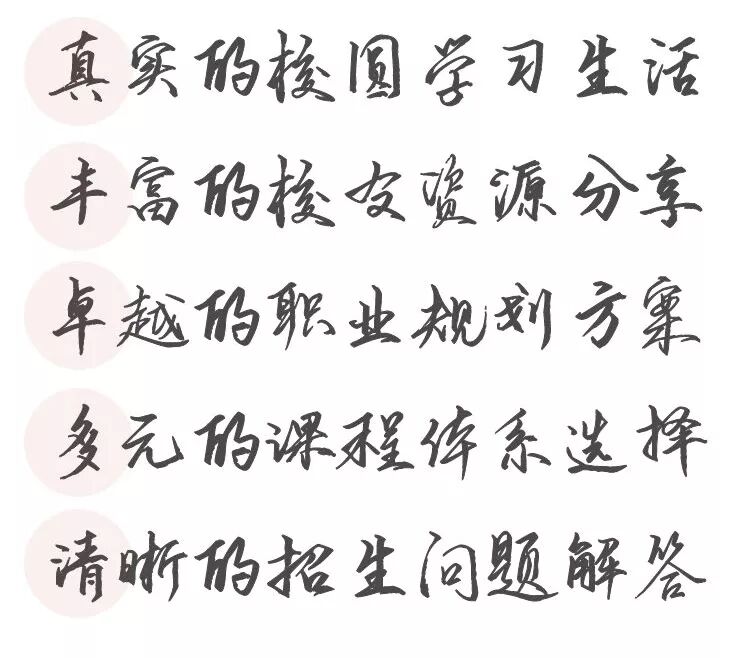 真实的校圆学习生活
丰富的校友资源分享
卓越的职业规划方案
多元的课程体系选择
清晰的招生问题解答